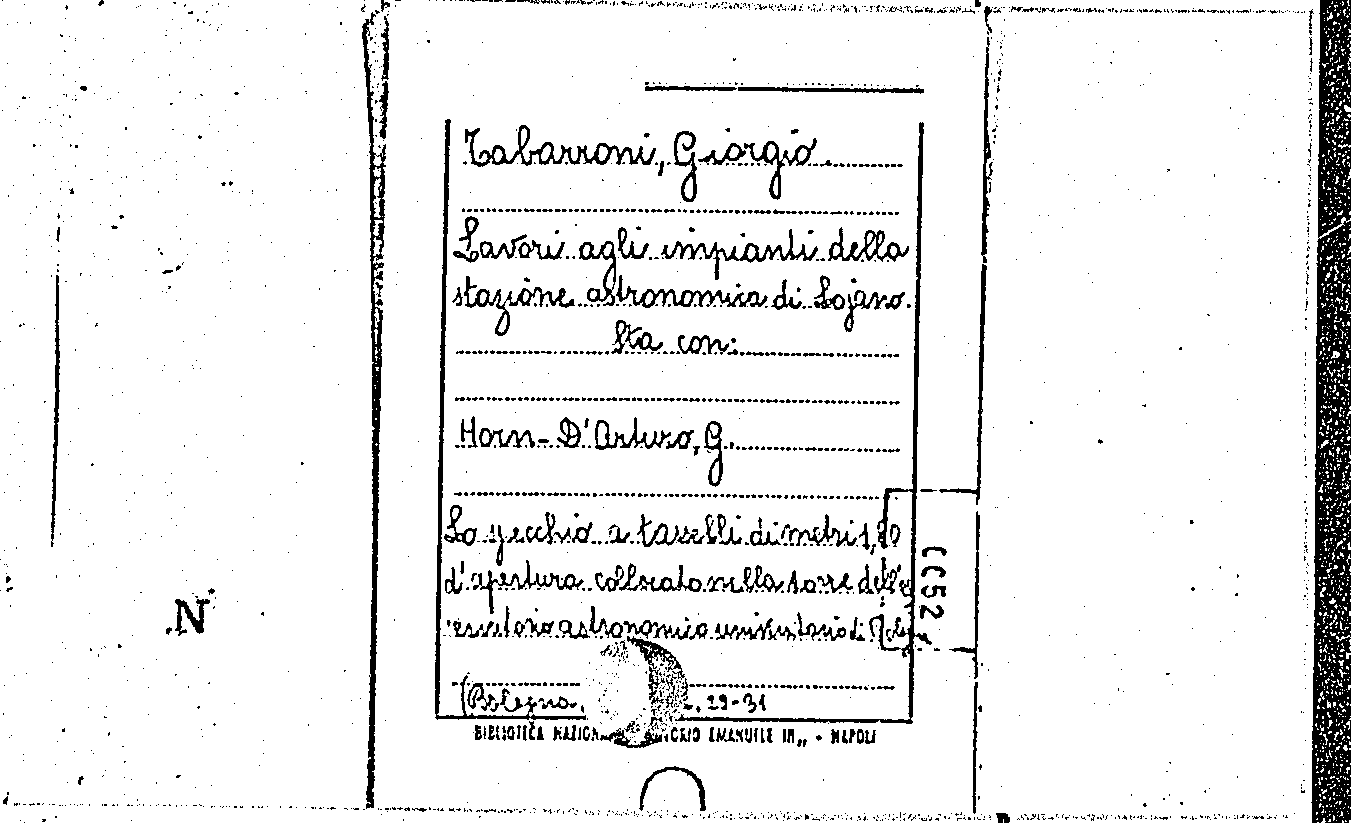 Tabarroni, Giorgio.
Lavori agli impianti della
stazione astronomica di Lojano.
Sta con:
Horn-D'Arturo, G.
Lo specchio a tasselli di metri 1,80
d'apertura collocato nella torre dell'
astronomico universitario di
(Bologna. 29-31
BIBLIOTECA EMANUELE III„ - NAPOLI
52
N